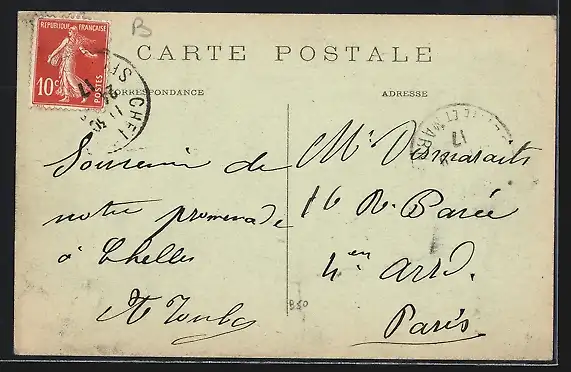 B
REPUBLIQUE FRANÇAISE
10c POSTES
CARTE POSTALE
CORRESPONDANCE
ADRESSE
CHEL
17
ET MAR
17
Souvenir de
notre promenade
à Chelles
Mr
16 R. Parée
4en Arrd.
Paris
B50